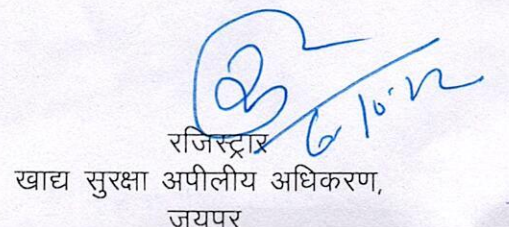 6·10·22
रजिस्ट्रार
खाद्य सुरक्षा अपीलीय अधिकरण,
जयपुर